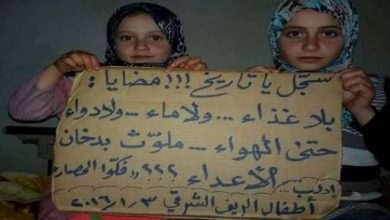 سجّل يا تاريخ !!! مضايا :
بلا غذاء ... ولا ماء ... ولا دواء
حتى الهواء .. ملوّث بدخان
الأعداء ؟؟؟ "فكّوا الحصار"
إدلب
أطفال الريف الشرقي ٢٠١٦/١/٣